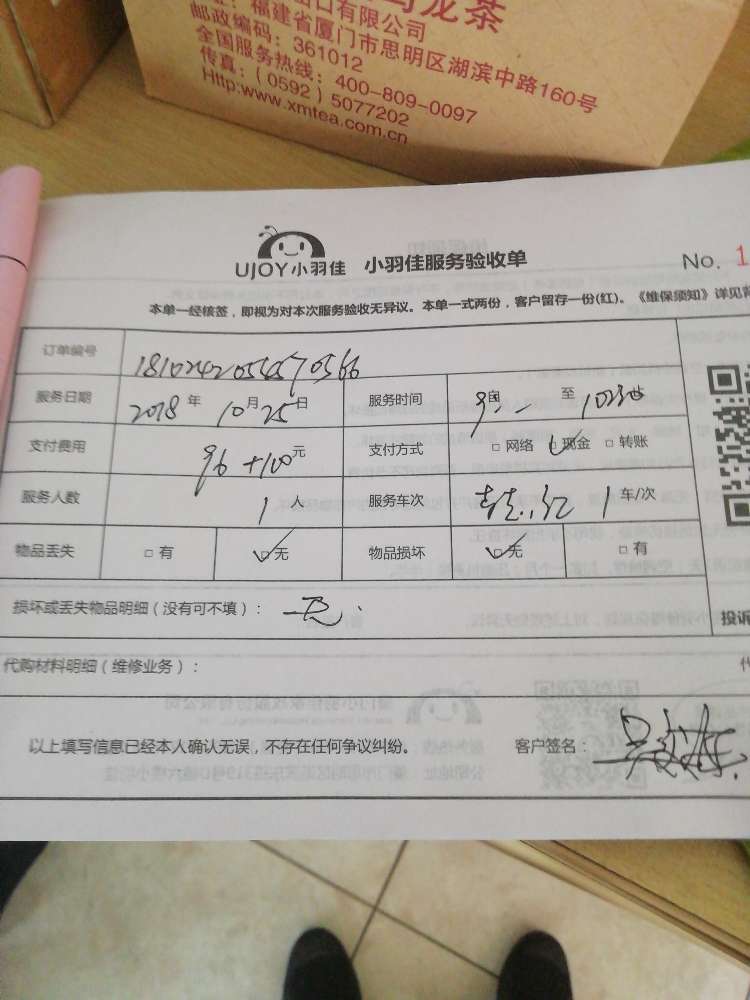 乌龙茶
出口有限公司
址：福建省厦门市思明区湖滨中路160号
邮政编码：361012
全国服务热线：400-809-0097
传真：(0592) 5077202
Http:www.xmtea.com.cn
UJOY小羽佳 小羽佳服务验收单 No. 1
本单一经核签，即视为对本次服务验收无异议。本单一式两份，客户留存一份(红)。《维保须知》详见背
订单编号
服务日期 2018 年 10 月 25 日 服务时间 9 至
支付费用 96+100 元 支付方式 □ 网络 □ 现金 □ 转账
服务人数 1 人 服务车次 1 车/次
物品丢失 □ 有 □ 无 物品损坏 □ 无 □ 有
损坏或丢失物品明细（没有可不填）： 无
投诉
代购材料明细（维修业务）：
以上填写信息已经本人确认无误，不存在任何争议纠纷。 客户签名：